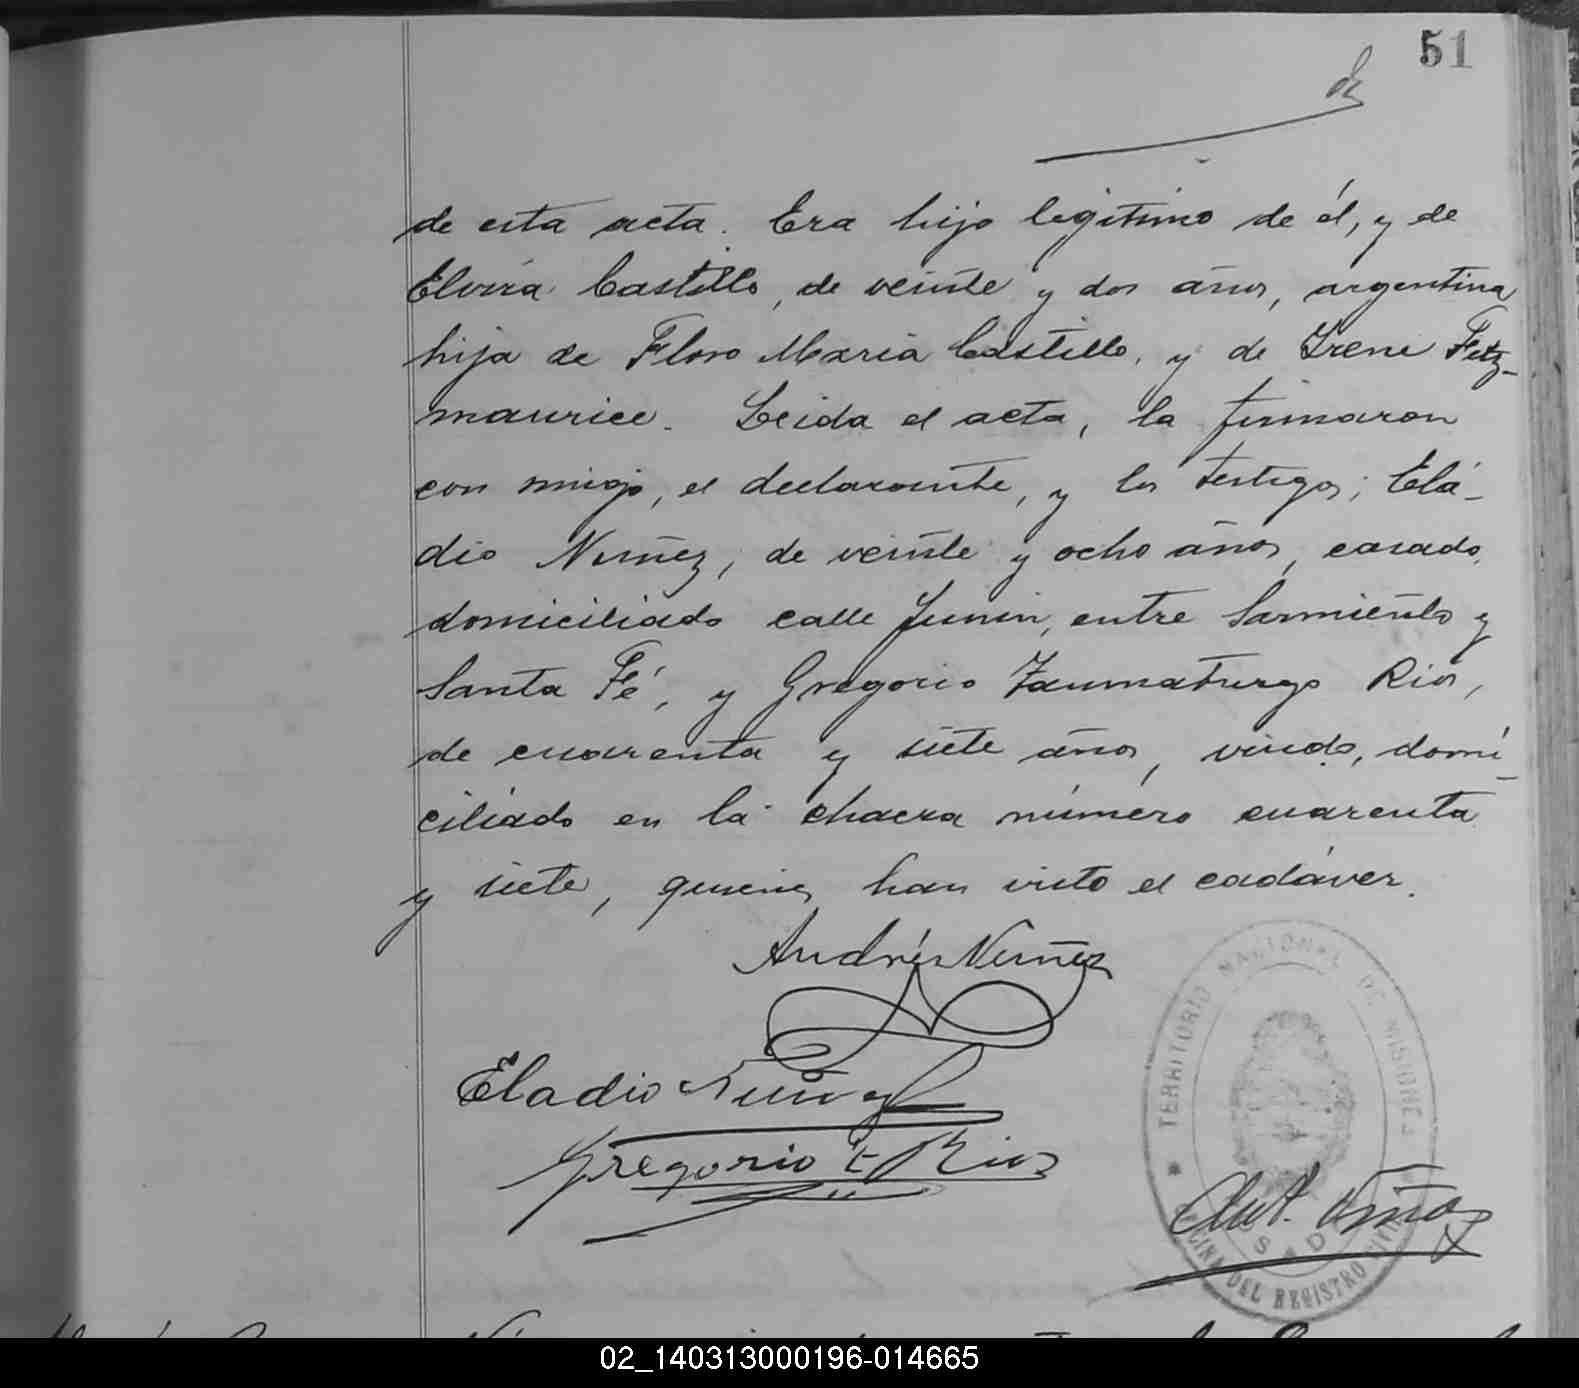 51
de esta acta. Era hijo legítimo de él, y de
Elvira Castillo, de veinte y dos años, argentina
hija de Floro Maria Castillo, y de Irene Fitz-
maurice. Leida el acta, la firmaron
con migo, el declarante, y los testigos; Elá-
dio Nuñez, de veinte y ocho años, casado,
domiciliado calle Junin, entre Sarmiento y
Santa Fé, y Gregorio Taumaturgo Rios,
de cuarenta y siete años, viudo, domi-
ciliado en la chacra número cuarenta
y siete, quienes han visto el cadáver.
Andrés Nuñez
Eladio Nuñez
Gregorio T Rios
TERRITORIO NACIONAL DE MISIONES
OFICINA DEL REGISTRO CIVIL
02_140313000196-014665